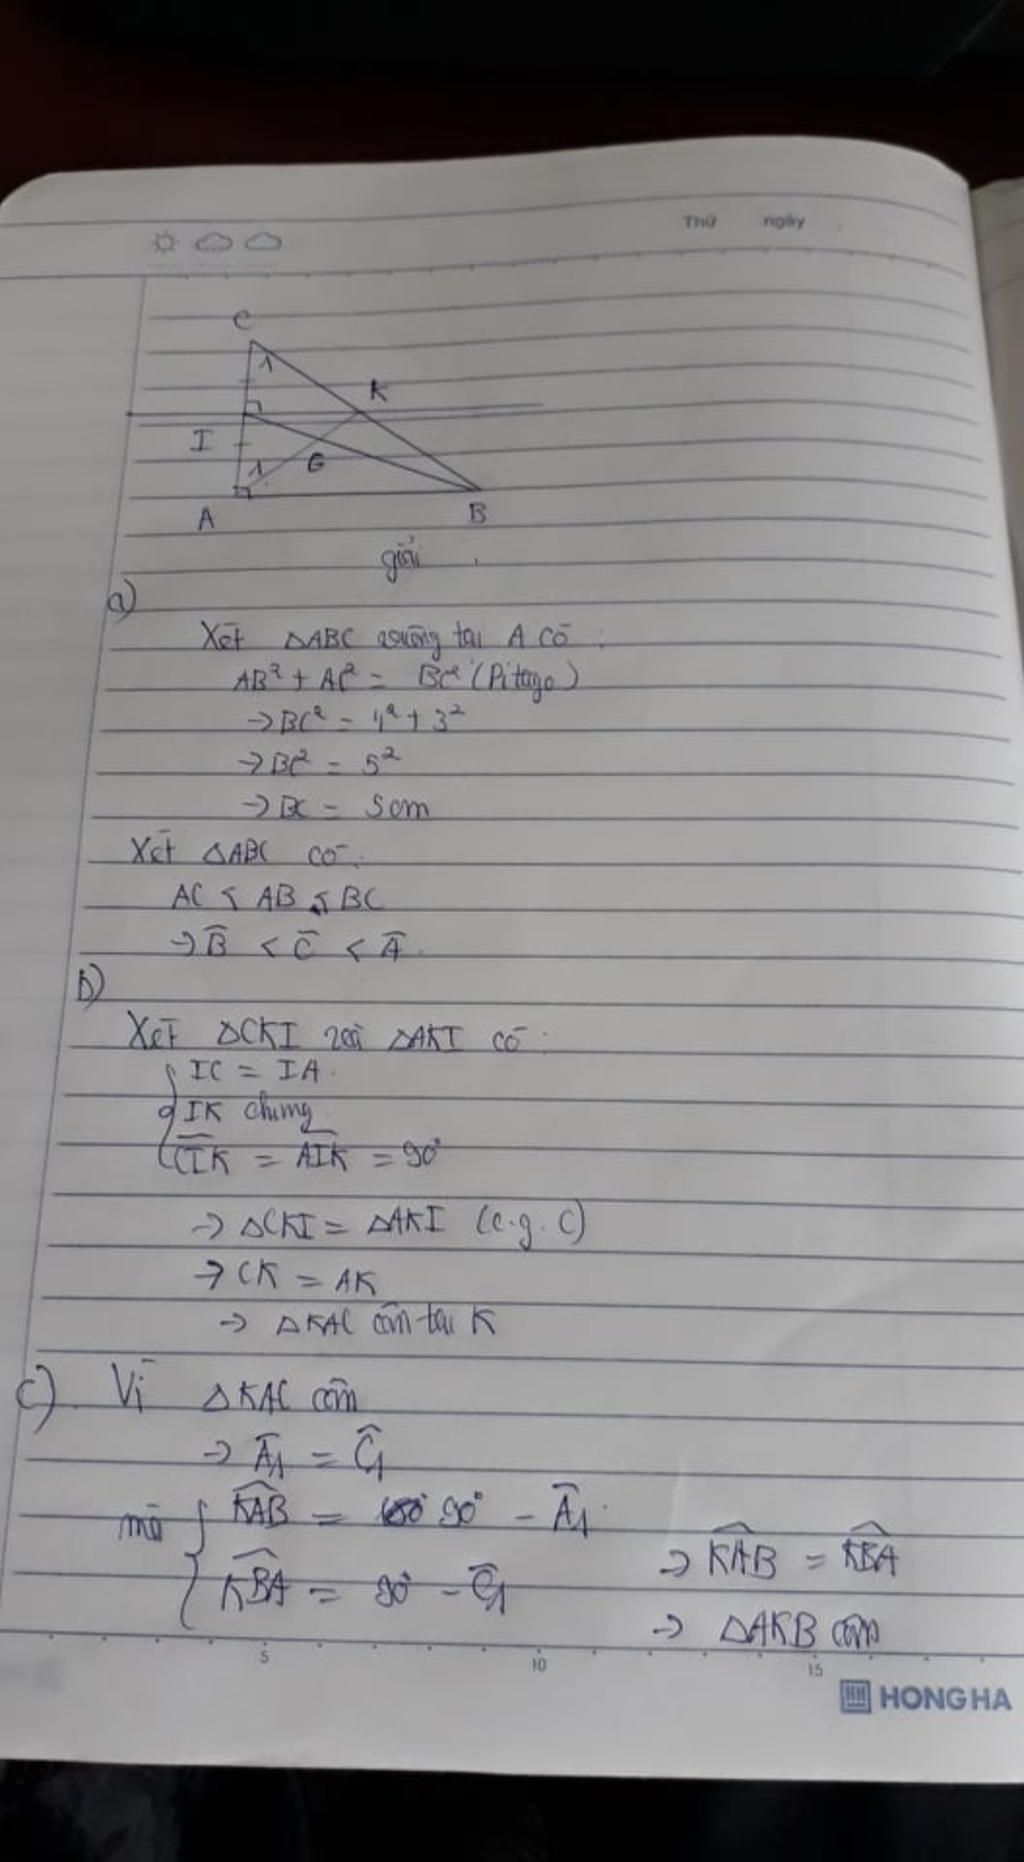 Thứ ngày
C
1
K
I
1 G
A B
giải
a)
Xét △ABC vuông tại A có :
AB² + AC² = BC² (Pitago)
→ BC² = 4² + 3²
→ BC² = 5²
→ BC = 5cm
Xét △ABC có :
AC < AB < BC
→ B̂ < Ĉ < Â.
b)
Xét △CKI và △AKI có :
{ IC = IA.
IK chung
CIK = AIK = 90°
→ △CKI = △AKI (c.g.c)
→ CK = AK
→ △KAC cân tại K
c) Vì △KAC cân
→ Â₁ = Ĉ₁
mà { KAB = 90° - Â₁.
KBA = 90° - Ĉ₁
→ KAB = KBA
→ △AKB cân
5 10 15
HH HONG HA